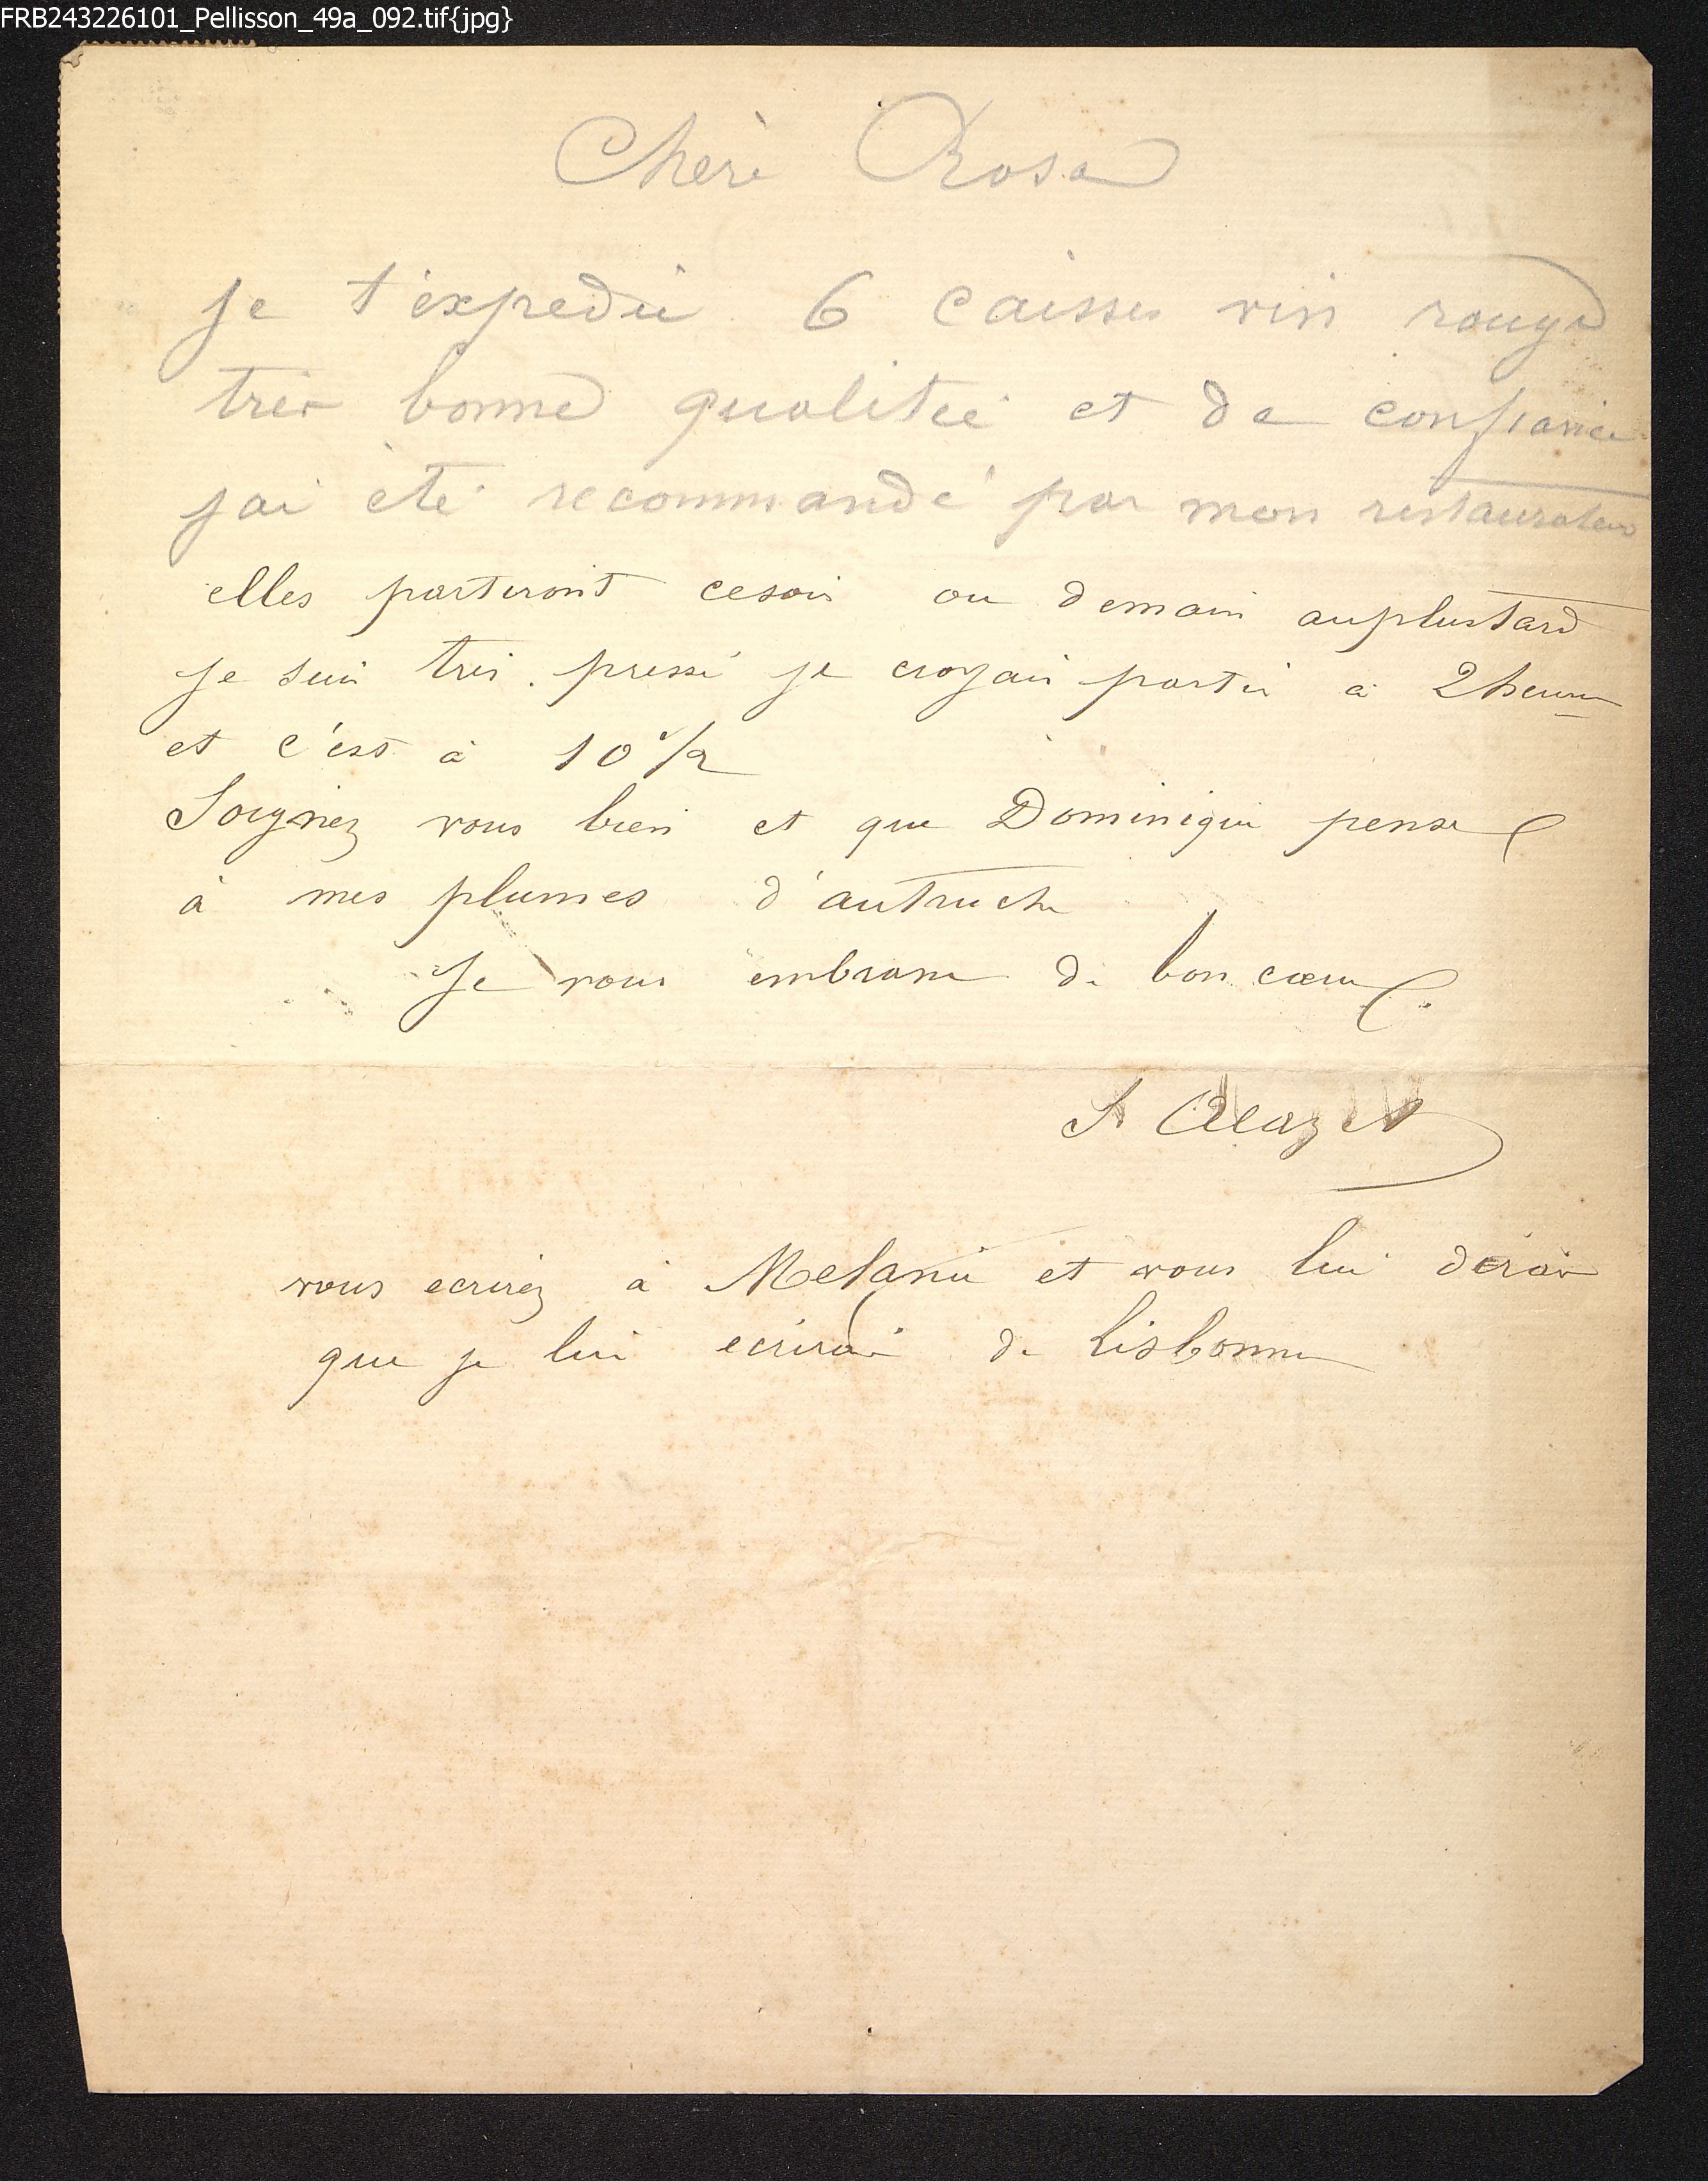 FRB243226101_Pellisson_49a_092.tif{jpg}
Chere Rosa
Je t'expedie 6 caisses vin rouge
très bonne qualitée et de confiance
jai été recommandé par mon restaurateur
elles partiront cesoir ou demain auplustard
je suis très pressé je croyais partir à 2 heures
et c'est à 10 1/2
Soignez vous bien et que Dominique pense
à mes plumes d'autruche
Je vous embrasse de bon cœur
vous ecrirez à Melanie et vous lui
que je lui ecrirai de Lisbonne